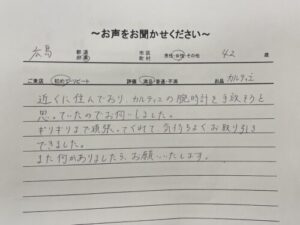 ～お声をお聞かせください～
広島 都道府県 市区町村 男性・女性・その他 42 歳
ご来店 初めて・リピート 評価 満足・普通・不満 お品 カルティエ
近くに住んでおり、カルティエの腕時計を手放そうと
思っていたのでお伺いしました。
ギリギリまで頑張ってくれて、気持ちよくお取り引き
できました。
また何かありましたら、お願いいたします。